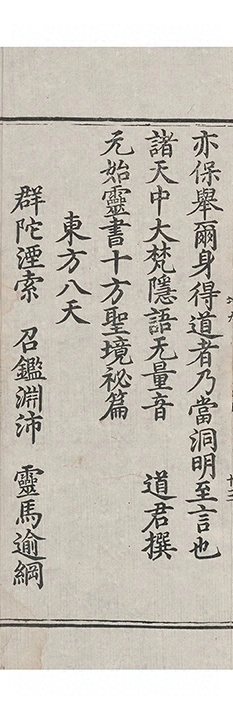 亦保舉爾身得道者乃當洞明至言也
諸天中大梵隱語无量音　道君撰
元始靈書十方聖境祕篇
東方八天
群陀湮索　召鑑淵沛　靈馬逾綱